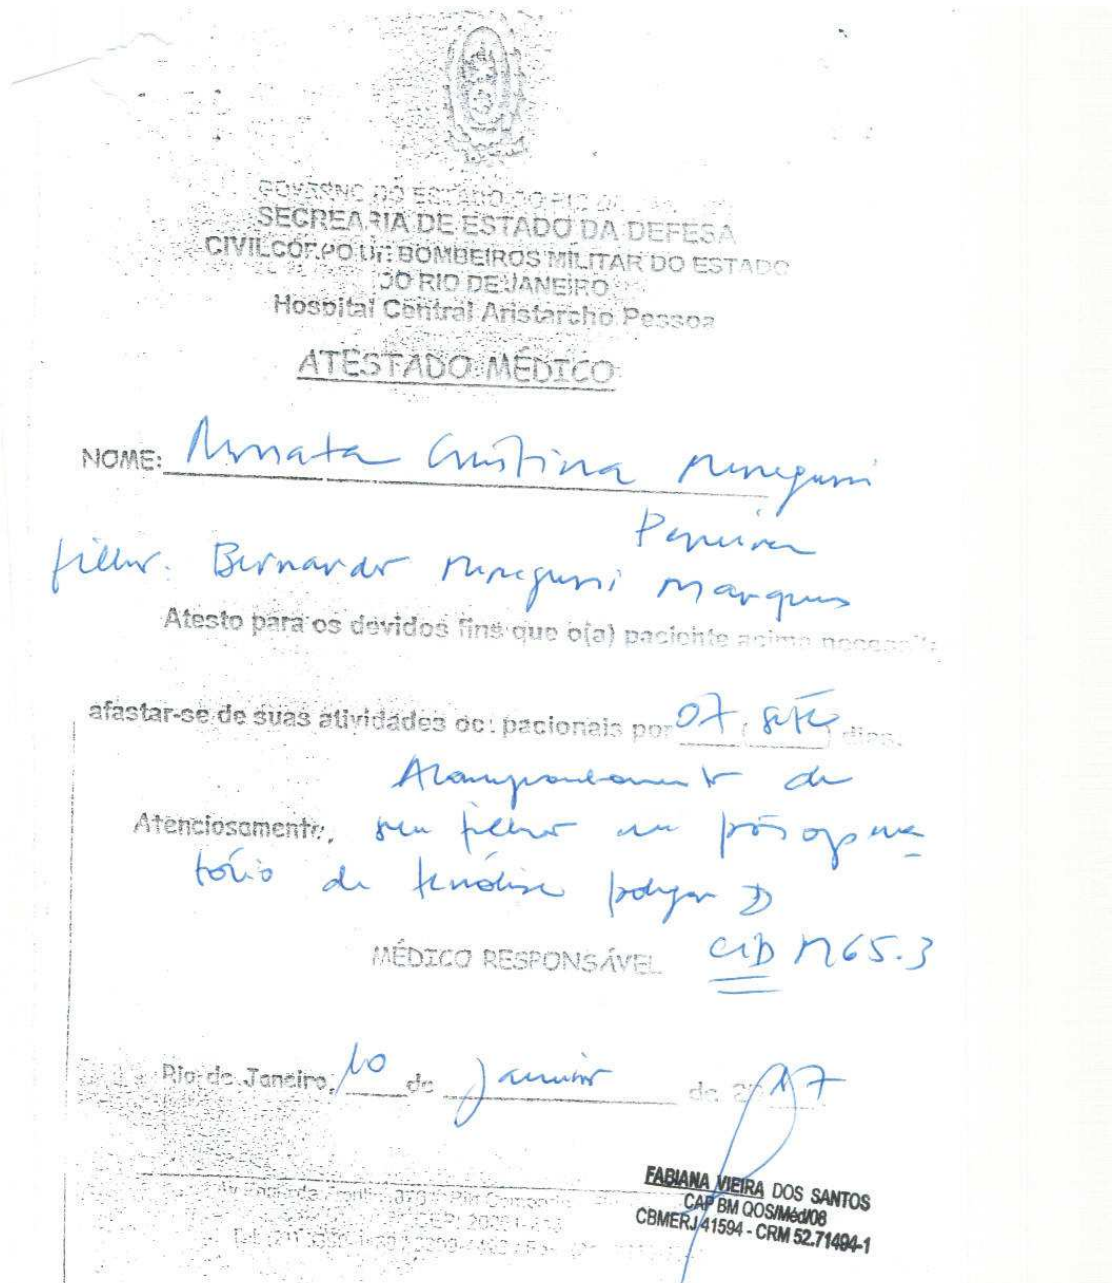 GOVERNO DO ESTADO DO RIO DE
SECREARIA DE ESTADO DA DEFESA
CIVILCORPO DE BOMBEIROS MILITAR DO ESTADO
DO RIO DE JANEIRO
Hospital Central Aristarcho Pessoa
ATESTADO MÉDICO
NOME: Renata Cristina Menegussi
Pereira
filho: Bernardo Menegussi Marques
Atesto para os devidos fins que o(a) paciente acima necessita
afastar-se de suas atividades ocupacionais por 07 (sete) dias.
Acompanhamento de
Atenciosamente, seu filho em pós opera
tório de tenólise polegar D
MÉDICO RESPONSÁVEL CID M65.3
Rio de Janeiro, 10 de Janeiro de 2017
FABIANA VIEIRA DOS SANTOS
CAP BM QOS/Méd/06
CBMERJ 41594 - CRM 52.71494-1